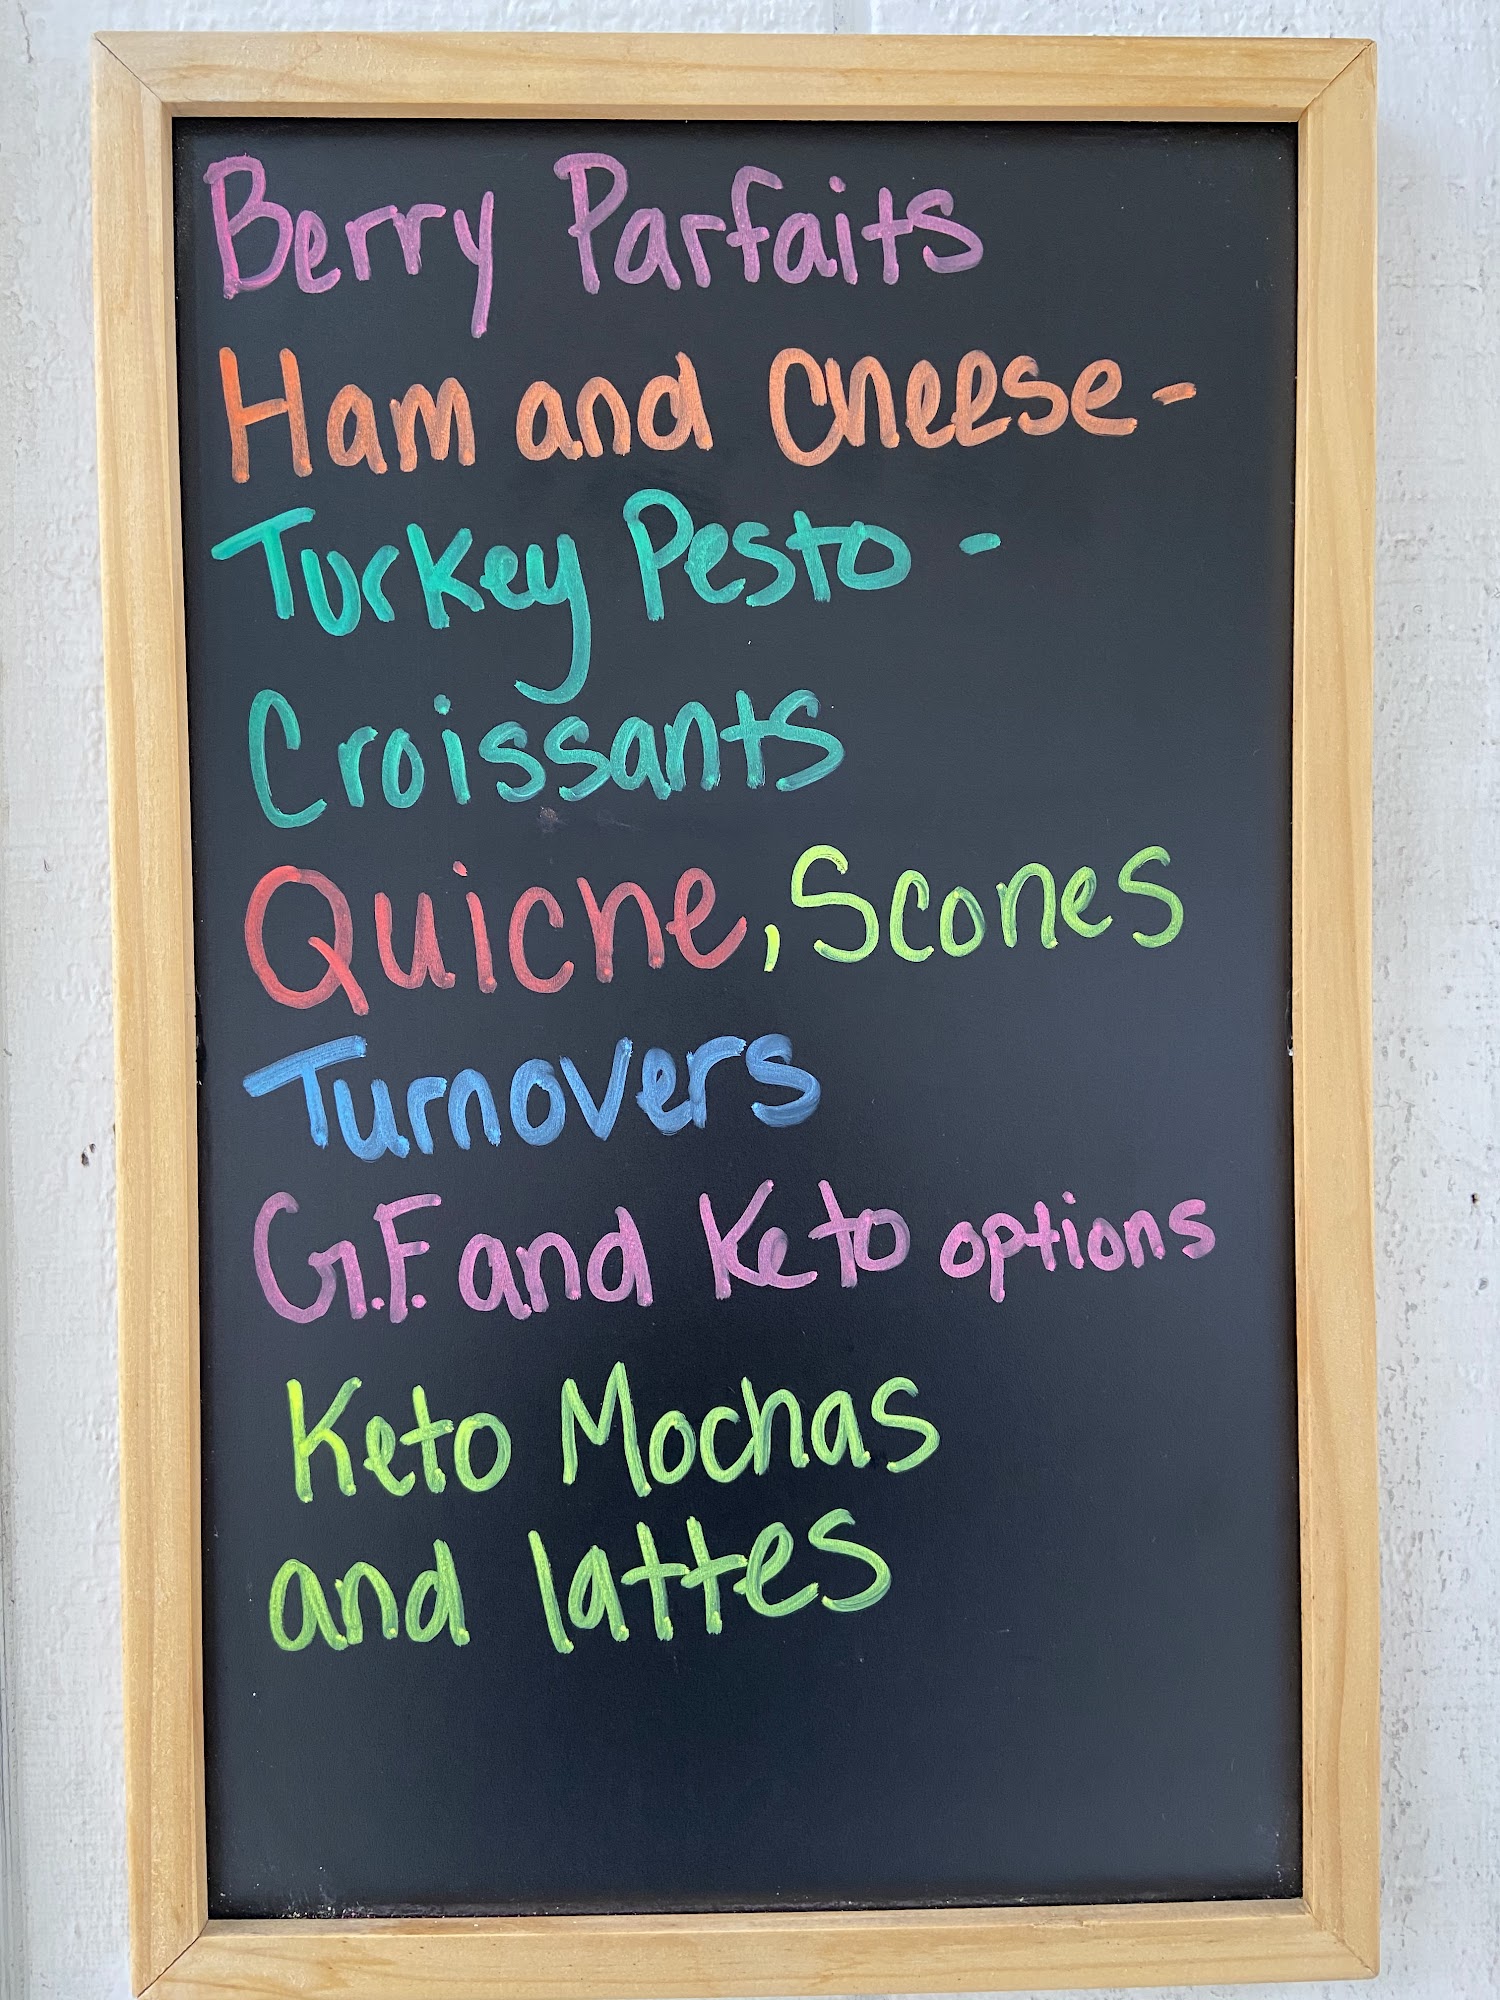 Berry Parfaits
Ham and Cheese -
Turkey Pesto -
Croissants
Quiche, Scones
Turnovers
G.F. and Keto options
Keto Mochas
and lattes